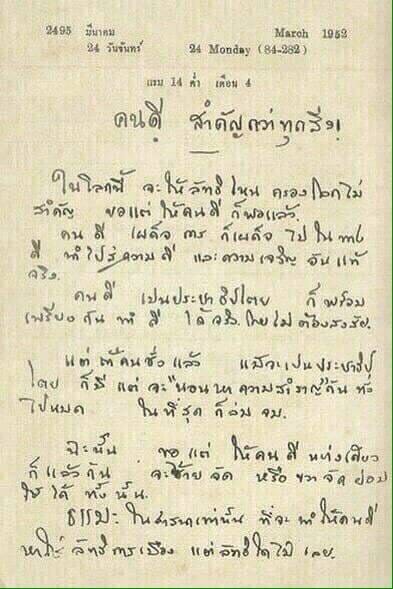 2495 มีนาคม March 1952
24 วันจันทร์ 24 Monday (84-282)
แรม 14 ค่ำ เดือน 4
คนดี สำคัญกว่าทุกสิ่ง!
ในโลกนี้ จะให้ลัทธิไหน ครองโลกไม่
สำคัญ ขอแต่ ให้คนดี ก็พอแล้ว.
คน ดี เผด็จ การ ก็เผด็จ ไป ใน ทาง
ดี ทำไปสู่ความดี และความเจริญ อันแท้
จริง.
คนดี เป็นประชาธิปไตย ก็พร้อม
เพรียงกัน ทำ ดี ได้จริง โดยไม่ต้องสงสัย.
แต่ ถ้าคนชั่ว แล้ว แม้จะเป็น ประชาธิป
ไตย ก็มี แต่ จะ "นอนหาความสำราญ" กัน ทั้ง
ไปหมด ในที่สุด ก็ล่ม จม.
ฉะนั้น ขอ แต่ ให้คนดี อย่างเดียว
ก็ แล้ว กัน จะซ้าย จัด หรือ ขวา จัด ย่อม
ใช้ ได้ ทั้งนั้น.
ธรรมะ ในศาสนาเท่านั้น ที่จะ ทำให้คนดี
หาใช่ ลัทธิการเมือง แต่ลัทธิใดไม่ เลย.